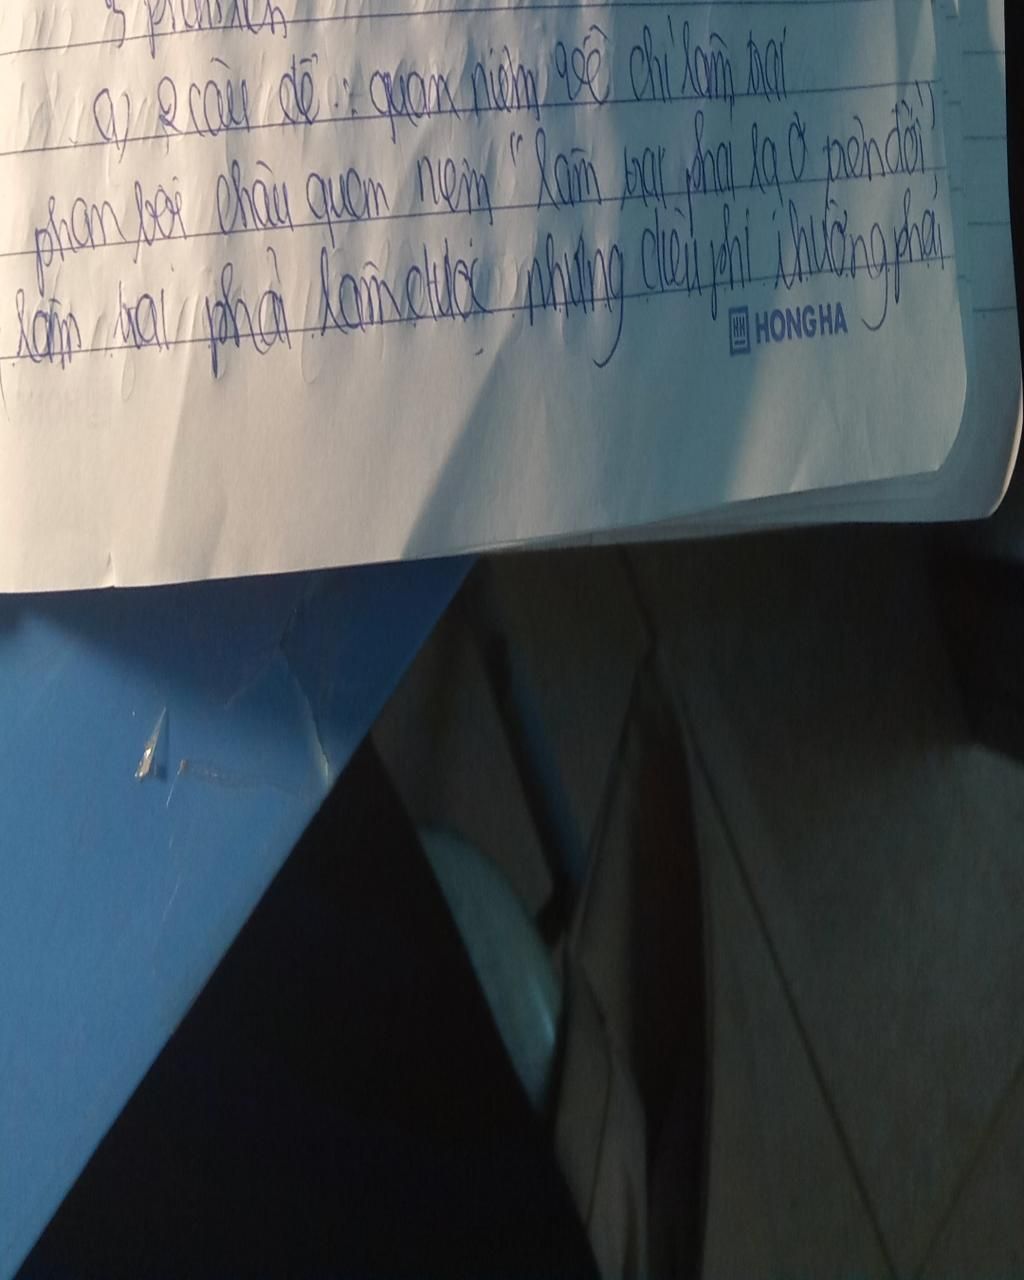 a) 2 câu đề : quan niệm về chí làm trai
phan bội châu quan niệm "làm trai phải lạ ở trên đời"
làm trai phải làm được những điều phi thường phải
HONG HA